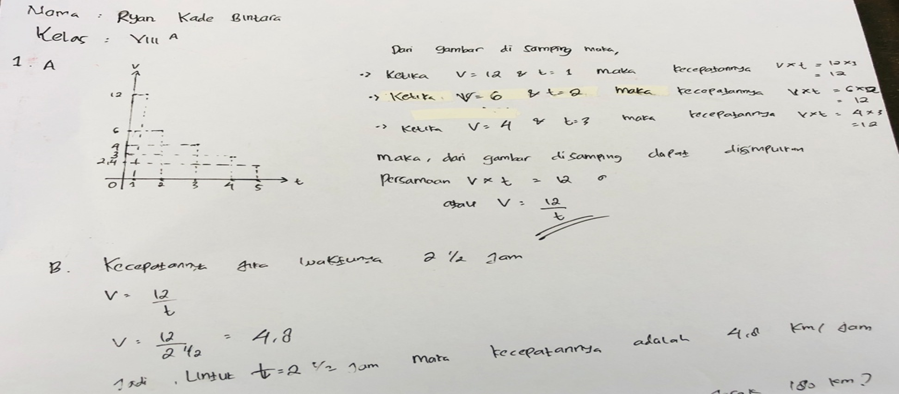 Nama : Ryan Kade Bintara
Kelas : VIII A
1. A
V
12
6
4
3
2,4
0 1 2 3 4 5 t
Dari gambar di samping maka,
-> Ketika V = 12 & t = 1 maka kecepatannya V x t = 12 x 1
= 12
-> Ketika V = 6 & t = 2 maka kecepatannya V x t = 6 x 2
= 12
-> Ketika V = 4 & t = 3 maka kecepatannya V x t = 4 x 3
= 12
maka, dari gambar disamping dapat disimpulkan
Persamaan V x t = 12
atau V = 12/t
B. Kecepatannya jika waktunya 2 1/2 Jam
V = 12/t
V = 12/2 1/2 = 4,8
Jadi, Untuk t = 2 1/2 Jam maka kecepatannya adalah 4,8 Km/Jam
180 km?